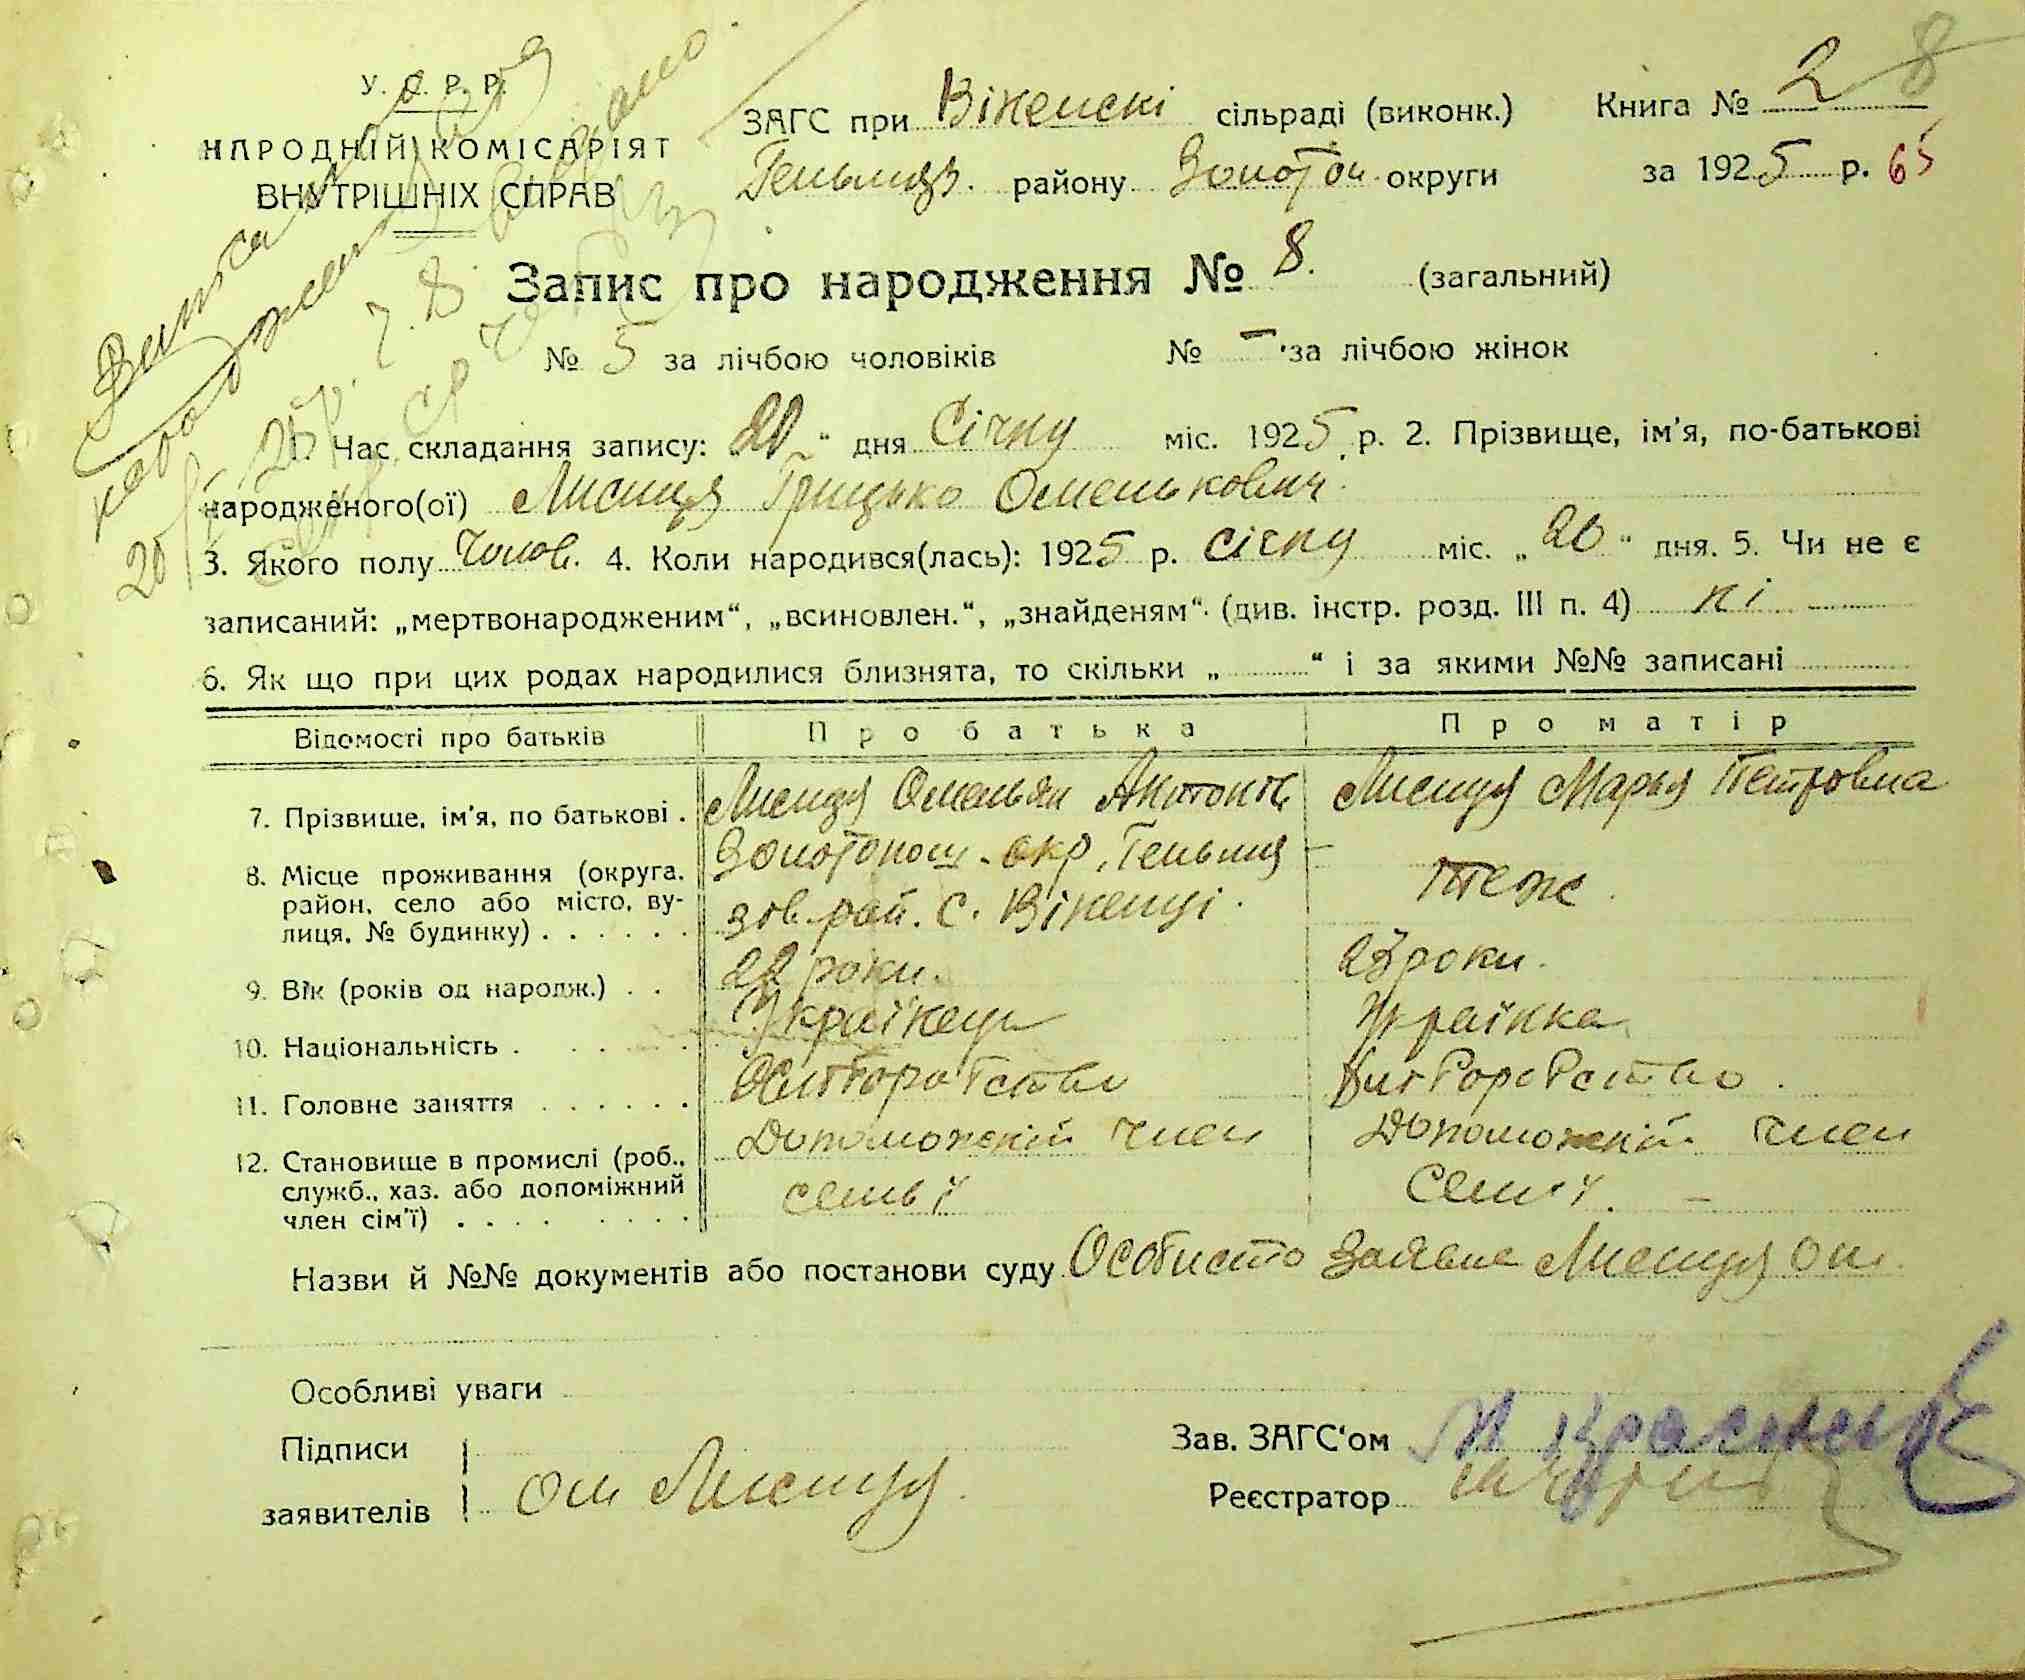 У. С. Р. Р.
НАРОДНІЙ КОМІСАРІЯТ
ВНУТРІШНІХ СПРАВ
ЗАГС при Вікенскі сільраді (виконк.) Книга № 2 8
Гельмяз. району Золотон округи за 1925 р. 65
Запис про народження № 8. (загальний)
№ 5 за лічбою чоловіків № – за лічбою жінок
1. Час складання запису: 20 " дня Січну міс. 1925 р. 2. Прізвище, ім'я, по-батькові
народженого(ої) Лисиця Грицько Оменькович.
3. Якого полу Чолов. 4. Коли народився(лась): 1925 р. січну міс. „ 20 " дня. 5. Чи не є
записаний: „мертвонародженим“, „всиновлен.“, „знайденям“ (див. інстр. розд. III п. 4) ні
6. Як що при цих родах народилися близнята, то скільки „ “ і за якими №№ записані
Відомості про батьків Про батька Про матір
7. Прізвище, ім'я, по батькові . Лисиця Омельян Антонів Лисиця Марья Петровна
8. Місце проживання (округа, район, село або місто, вулиця, № будинку) . . . . . . Золотонош. окр, Гельмязів. рай. с. Вікенці. теж.
9. Вік (років од народж.) . . 22 роки. 23 роки.
10. Національність . Українець Українка
11. Головне заняття . . . . . . Хліборобство
12. Становище в промислі (роб., служб., хаз. або допоміжний член сім'ї) . . . . Допоможній член семьї Допоможній член семьї.
Назви й №№ документів або постанови суду Особисто заявив Лисиця Ом.
Особливі уваги
Підписи
заявителів Ом Лисиця
Зав. ЗАГС'ом
Реєстратор